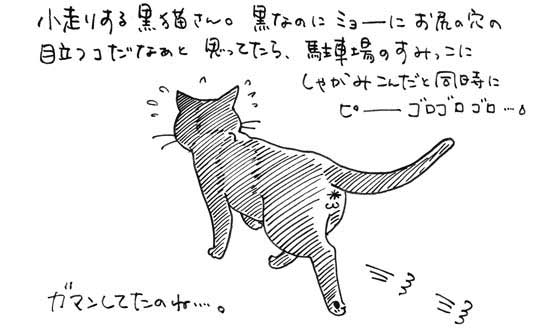 小走りする黒猫さん。黒なのにミョーにお尻の穴の
目立つコだなぁと思ってたら、駐車場のすみっこに
しゃがみこんだと同時に
ピーーーゴロゴロゴロ…。
ガマンしてたのね…。